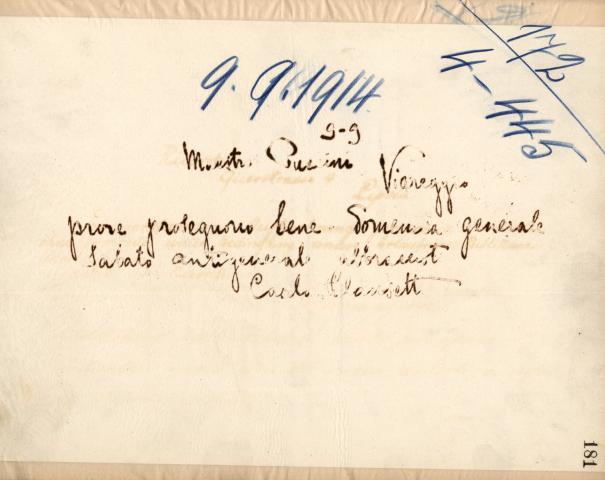 172
4-445
9.9.1914.
9-9
Maestro Puccini Viareggio
prove proseguono bene Domenica generale
Sabato antigenerale
Carlo Clausetti
181